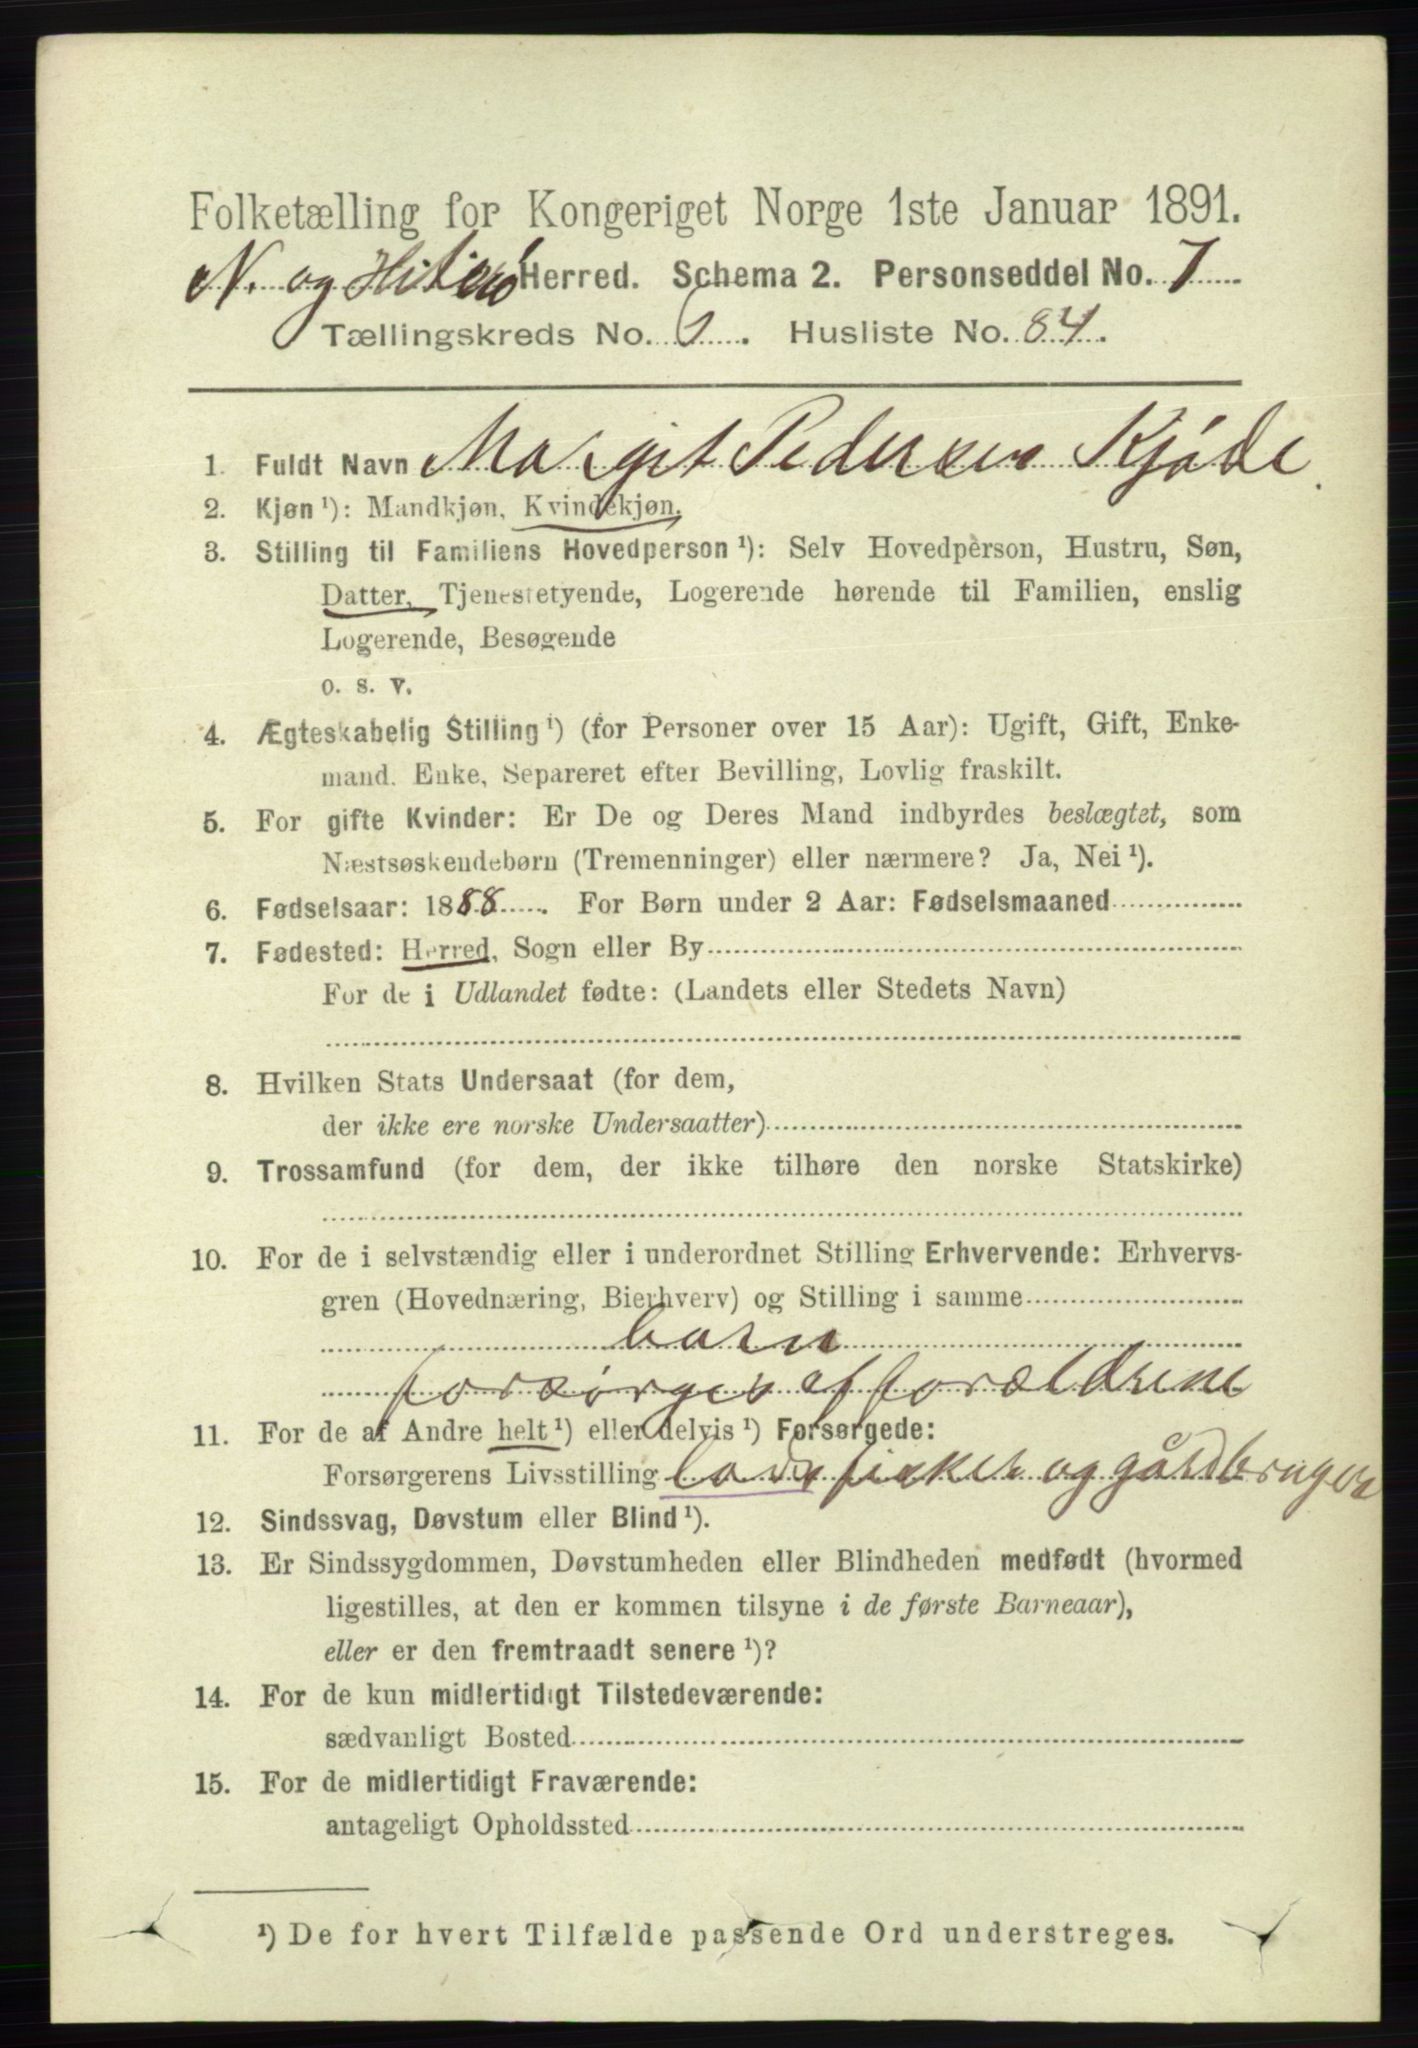 Folketælling for Kongeriget Norge 1ste Januar 1891.
N. og Hiterø Herred. Schema 2. Personseddel No. 7
Tællingskreds No. 6. Husliste No. 84.
1. Fuldt Navn Margit Pedersen Kjøde.
2. Kjøn ¹): Mandkjøn, Kvindekjøn.
3. Stilling til Familiens Hovedperson ¹): Selv Hovedperson, Hustru, Søn,
Datter, Tjenestetyende, Logerende hørende til Familien, enslig
Logerende, Besøgende
o. s. v.
4. Ægteskabelig Stilling ¹) (for Personer over 15 Aar): Ugift, Gift, Enke-
mand. Enke, Separeret efter Bevilling, Lovlig fraskilt.
5. For gifte Kvinder: Er De og Deres Mand indbyrdes beslægtet, som
Næstsøskendebørn (Tremenninger) eller nærmere? Ja, Nei ¹).
6. Fødselsaar: 1888. For Børn under 2 Aar: Fødselsmaaned
7. Fødested: Herred, Sogn eller By
For de i Udlandet fødte: (Landets eller Stedets Navn)
8. Hvilken Stats Undersaat (for dem,
der ikke ere norske Undersaatter)
9. Trossamfund (for dem, der ikke tilhøre den norske Statskirke)
10. For de i selvstændig eller i underordnet Stilling Erhvervende: Erhvervs-
gren (Hovednæring, Bierhverv) og Stilling i samme
barn
forsørges af forældrene
11. For de af Andre helt ¹) eller delvis ¹) Forsørgede:
Forsørgerens Livsstilling fisker og gårdbruger
12. Sindssvag, Døvstum eller Blind ¹).
13. Er Sindssygdommen, Døvstumheden eller Blindheden medfødt (hvormed
ligestilles, at den er kommen tilsyne i de første Barneaar),
eller er den fremtraadt senere ¹)?
14. For de kun midlertidigt Tilstedeværende:
sædvanligt Bosted
15. For de midlertidigt Fraværende:
antageligt Opholdssted
¹) De for hvert Tilfælde passende Ord understreges.